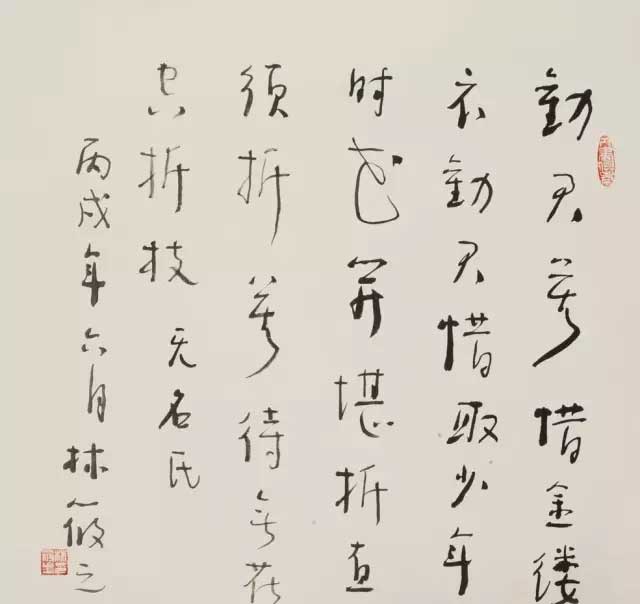 劝君莫惜金缕
衣劝君惜取少年
时花开堪折直
须折莫待无花
空折枝 无名氏
丙戌年六月林筱之